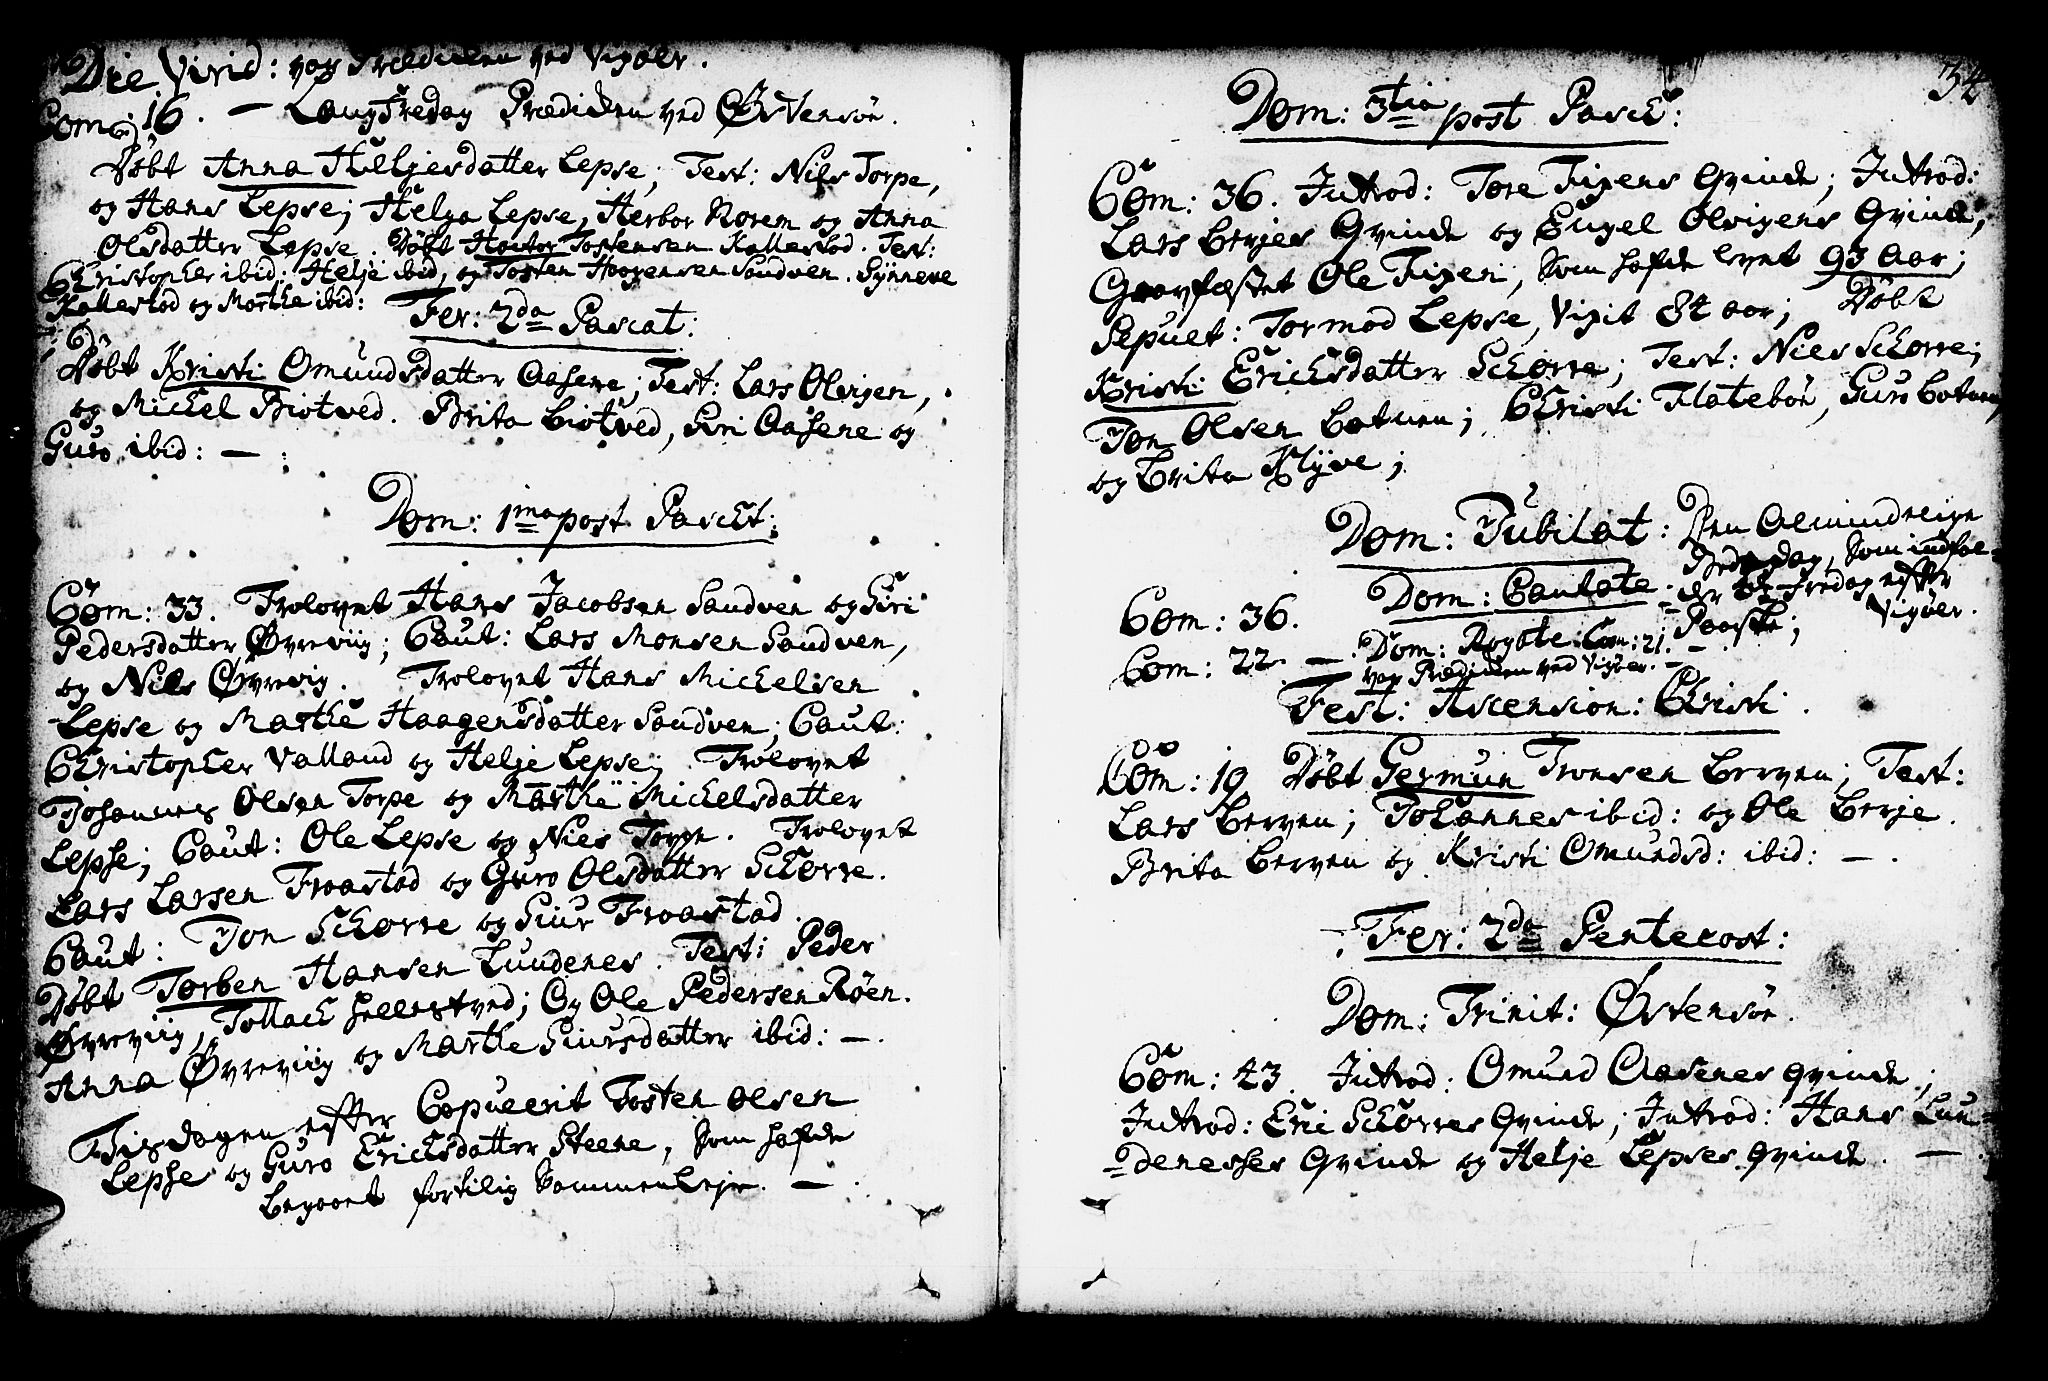 Die Virid: var Prædiken ved Vigøer.
Com: 16. — Langfredag Prædiken ved Østensöe.
Døbt Anna Helljesdatter Lepse; Test: Nils Torpe,
og Hans Lepse; Helga Lepse, Herbor Norem og Anna
Olsdatter Lepse. Døbt Tostensen Kallestad. Test:
Christopher ibid: Helje ibid, og Tosten Haagensen Sandven. Synneve
Kallestad og Marthe ibid:
Fer: 2da Pascat:
Døbt Kristi Omundsdatter Aasene; Test: Lars Olvigen,
og Michel Biotved. Brita Biotved, Siri Aasene og
Guro ibid: —
Dom: 1ma post Pascht:
Com: 33. Trolovet Hans Jacobsen Sandven og Siri
Pedersdatter Øvreviig; Caut: Lars Monsen Sandven,
og Nils Øvrevig. Trolovet Hans Michelsen
Lepse og Marthe Haagensdatter Sandven; Caut:
Christopher Valland og Helje Lepse; Trolovet
Johannes Olsen Torpe og Marthe Michelsdatter
Lepse; Caut: Ole Lepse og Niels Torpe. Trolovet
Lars Larsen Froastad og Guro Olsdatter Schorre.
Caut: Jon Schorre og Siur Froastad.
Døbt Torben Hansen Lundenes. Test: Peder
Øvreviig, Tollach Sellestved; Og Ole Pedersen Röen.
Anna Øvreviig og Marthe Siursdatter ibid: —.
Tisdagen effter Copulerit Tosten Olsen
Lepse og Guro Erichsdatter Steene, som hafde
begaaet fortilig Sammenleje. —
34
Dom: 3tia post Pasch:
Com: 36. Introd: Tore Fixens Qvinde; Introd:
Lars Berjes Qvinde og Engel Olvigens Qvinde;
Gravfæstet Ole Fixen, som hafde levet 93 Aar;
Sepult: Tormod Lepse, vixit 84 aar; Døbt
Kristi Erichsdatter Schorre; Test: Niels Schorre;
Jon Olsen Botnen; Christi Flatebön, Guro Botnen,
og Brita Klyve;
Dom: Jubilat: Den Almindelige
Bededag, som indfal-
der 4de Fredag effter
Paaske; Vigøer.
Com: 36. Dom: Cantate.
Com: 22. —. Dom: Rogate: Com: 21. —
var Prædiken ved Vigøer. —
Fest: Ascension: Christi.
Com: 19. Døbt Germun Tronsen Berven; Test:
Lars Berven; Johannes ibid: og Ole Berje.
Brita Berven og Kristi Omundsd: ibid: —.
Fer: 2da Pentecost:
Dom: Trinit: Østensöe.
Com: 43. Introd: Omund Aasenes qvinde;
Introd: Eric Schorres Qvinde; Introd: Hans Lun-
denesses Qvinde og Helje Lepses qvinde. —.